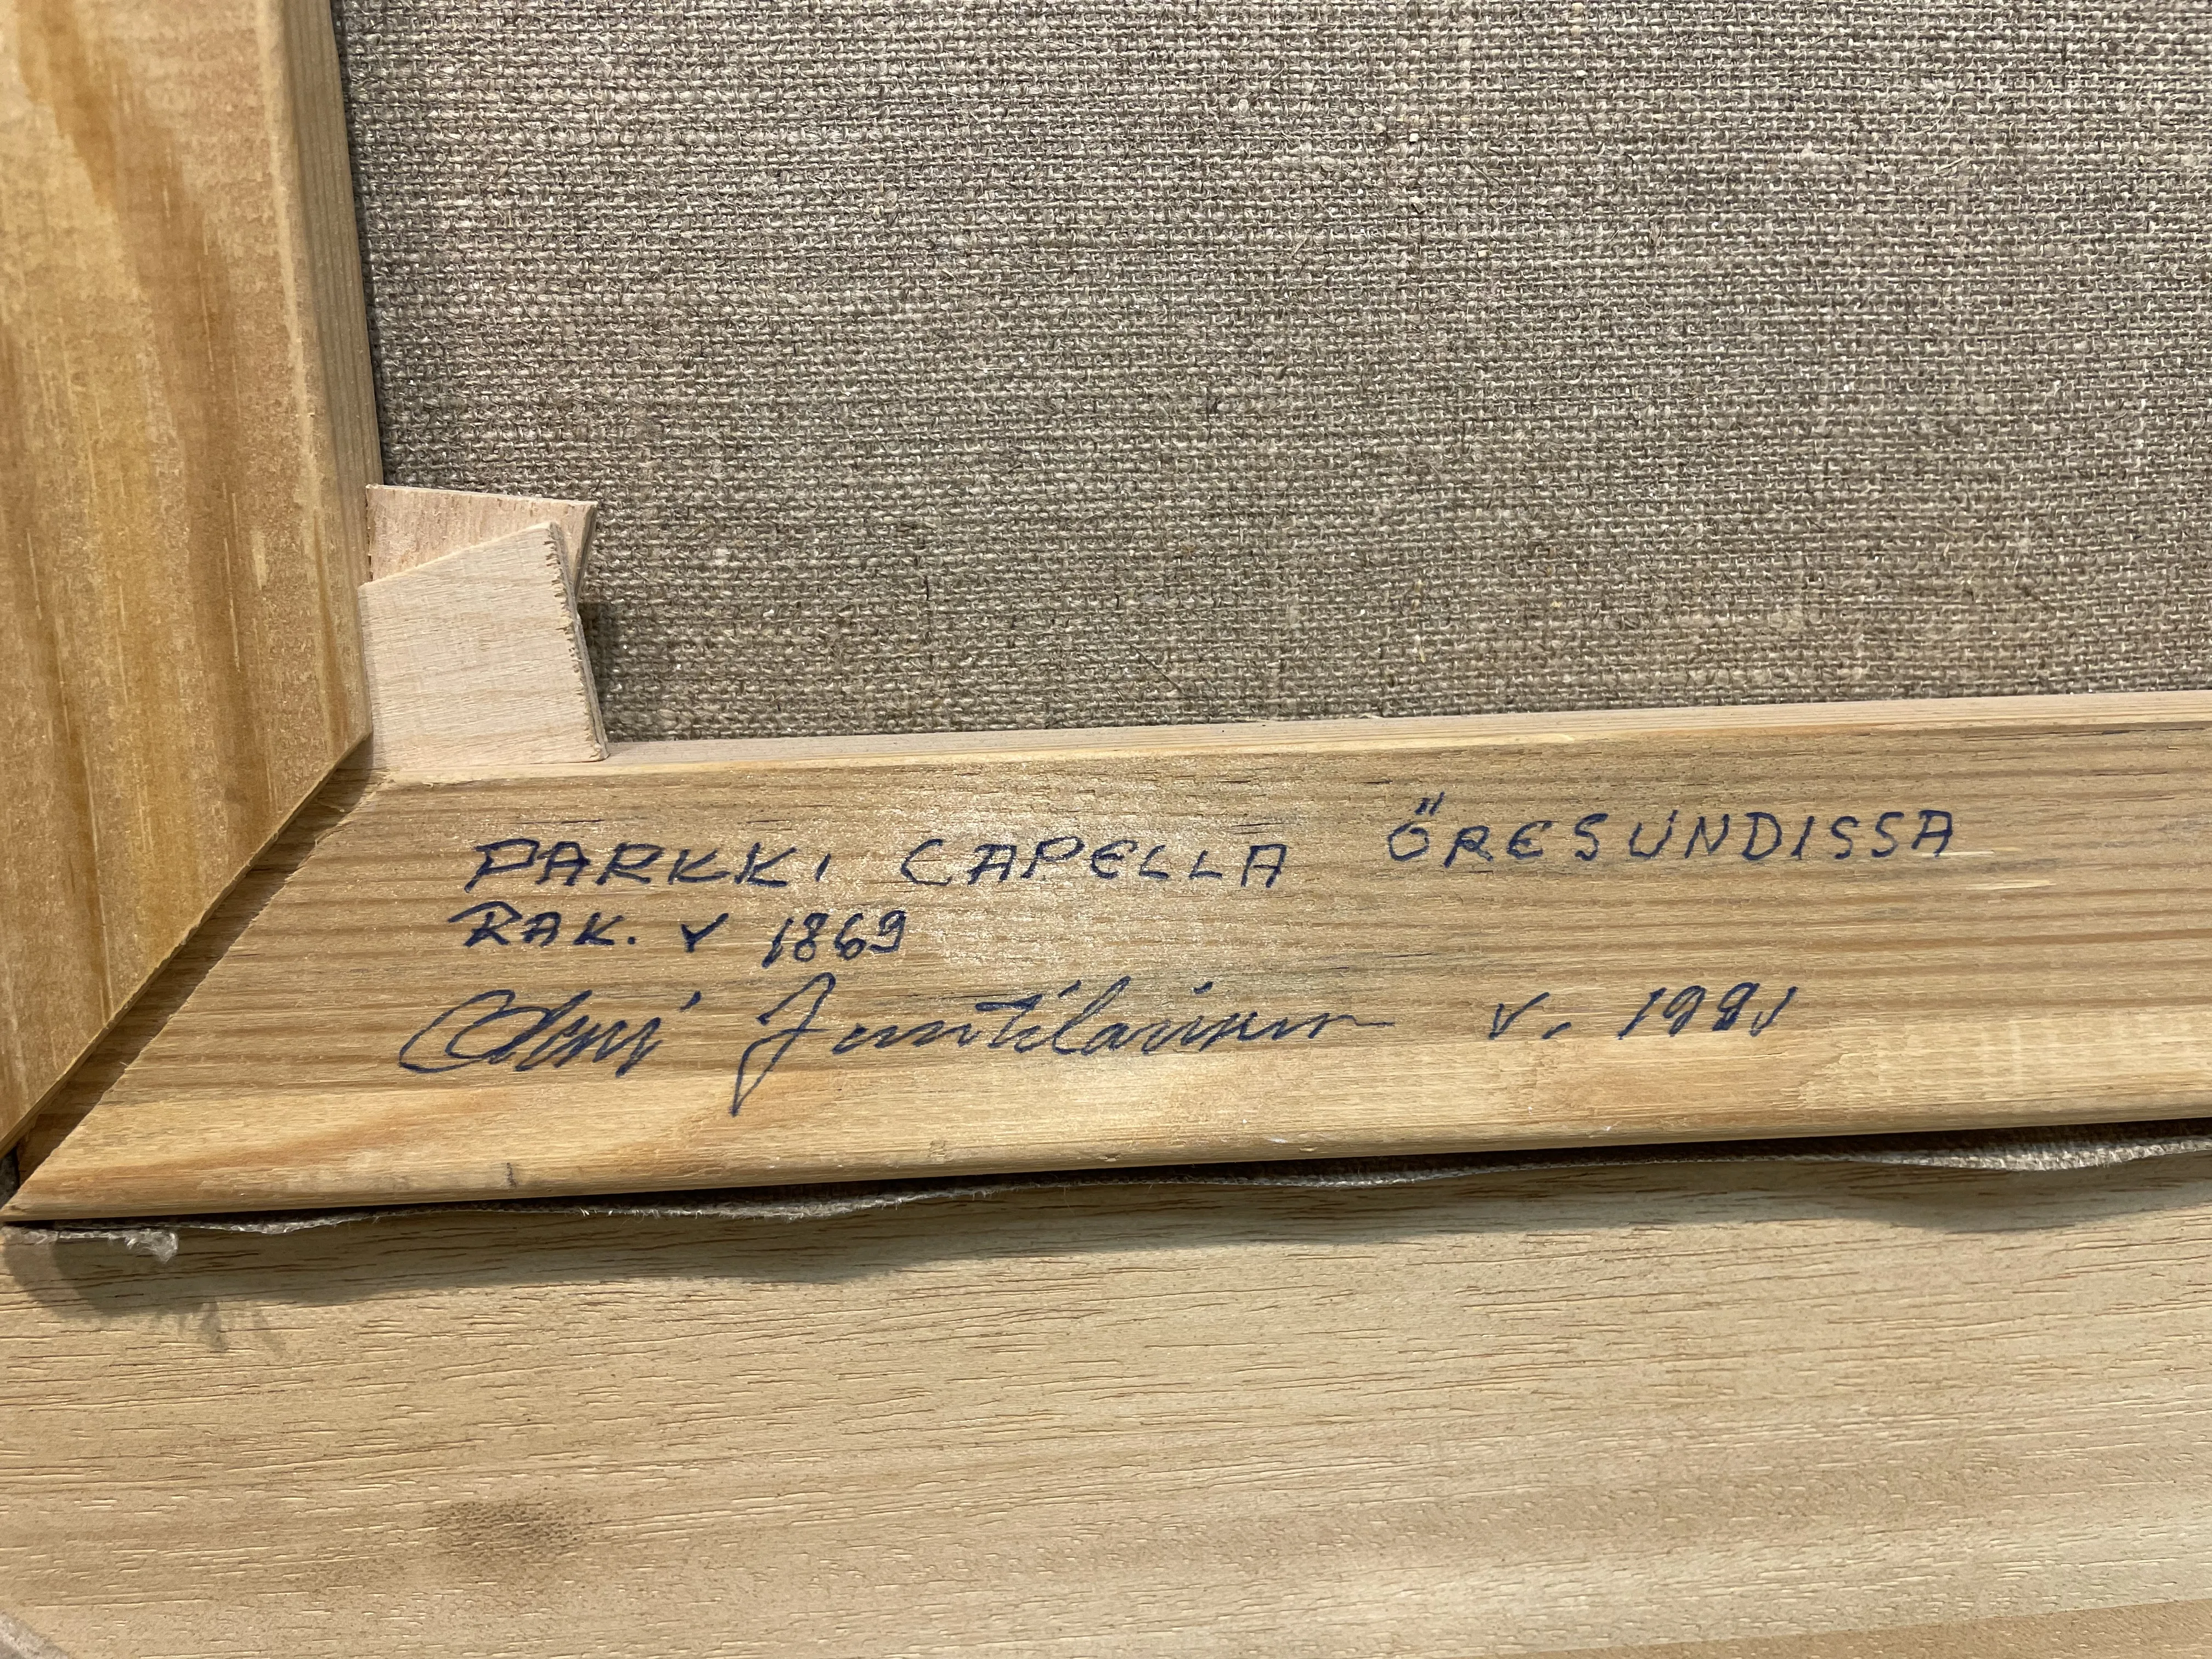 PARKKI CAPELLA ÖRESUNDISSA
RAK. v 1869
Juntilainen v. 1991